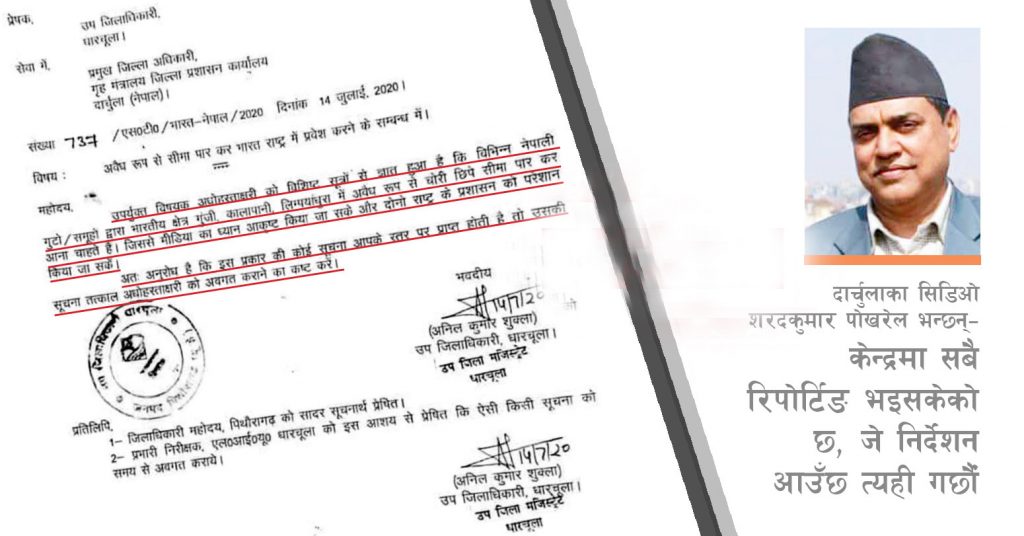 प्रेषक,
उप जिलाधिकारी,
धारचूला।
सेवा में,
प्रमुख जिल्ला अधिकारी,
गृह मंत्रालय जिल्ला प्रशासन कार्यालय
दार्चुला (नेपाल)।
संख्या 737 /एस०टी०/भारत-नेपाल/2020 दिनांक 14 जुलाई, 2020।
विषय : अवैध रूप से सीमा पार कर भारत राष्ट्र में प्रवेश करने के सम्बन्ध में।
महोदय,
उपर्युक्त विषयक अधोहस्ताक्षरी को विशिष्ट सूत्रों से ज्ञात हुआ है कि विभिन्न नेपाली
गुटो/समूहो द्वारा भारतीय क्षेत्र गुंजी, कालापानी, लिम्पयांधुरा में अवैध रूप से चोरी छिपे सीमा पार कर
आना चाहते है। जिससे मीडिया का ध्यान आकृष्ट किया जा सके और दोनो राष्ट्र के प्रशासन को परेशान
किया जा सकें।
अतः अनुरोध है कि इस प्रकार की कोई सूचना आपके स्तर पर प्राप्त होती है तो उसकी
सूचना तत्काल अधोहस्ताक्षरी को अवगत कराने का कष्ट करें।
भवदीय
14/7/20
(अनिल कुमार शुक्ला)
उप जिलाधिकारी, धारचूला।
उप जिला मजिस्ट्रेट
धारचूला
प्रतिलिपि,
1- जिलाधिकारी महोदय, पिथौरागढ़ को सादर सूचनार्थ प्रेषित।
2- प्रभारी निरीक्षक, एल०आई०यू० धारचूला को इस आशय से प्रेषित कि ऐसी किसी सूचना को
समय से अवगत कराये।
14/7/20
(अनिल कुमार शुक्ला)
उप जिलाधिकारी, धारचूला।
उप जिला मजिस्ट्रेट
धारचूला
दार्चुलाका सिडिओ
शरदकुमार पोखरेल भन्छन्-
केन्द्रमा सबै
रिपोर्टिङ भइसकेको
छ, जे निर्देशन
आउँछ त्यही गर्छौं